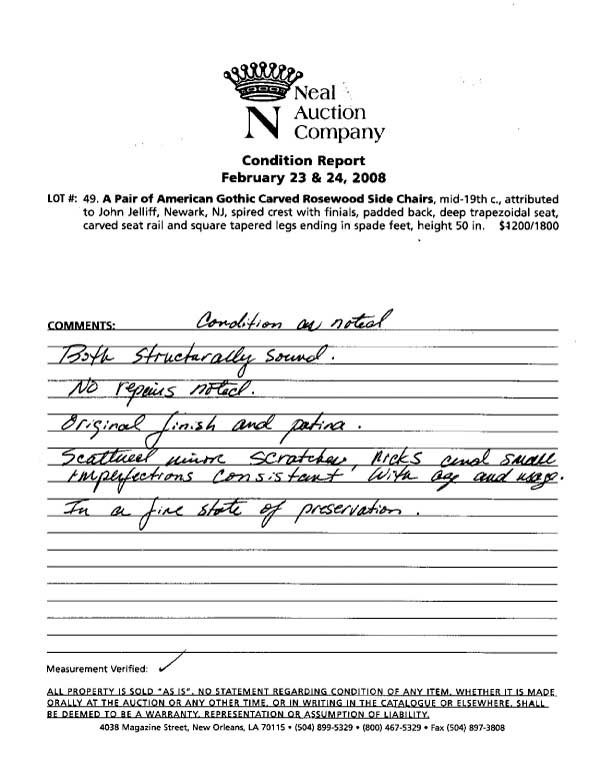 Neal
N Auction
Company
Condition Report
February 23 & 24, 2008
LOT #: 49. A Pair of American Gothic Carved Rosewood Side Chairs, mid-19th c., attributed
to John Jelliff, Newark, NJ, spired crest with finials, padded back, deep trapezoidal seat,
carved seat rail and square tapered legs ending in spade feet, height 50 in. $1200/1800
COMMENTS: Condition as noted
Both structurally sound.
No repairs noted.
Original finish and patina.
Scattered minor scratches, nicks and small
imperfections consistant with age and usage.
In a fine state of preservation.
Measurement Verified: ✓
ALL PROPERTY IS SOLD "AS IS". NO STATEMENT REGARDING CONDITION OF ANY ITEM, WHETHER IT IS MADE
ORALLY AT THE AUCTION OR ANY OTHER TIME, OR IN WRITING IN THE CATALOGUE OR ELSEWHERE, SHALL
BE DEEMED TO BE A WARRANTY, REPRESENTATION OR ASSUMPTION OF LIABILITY.
4038 Magazine Street, New Orleans, LA 70115 • (504) 899-5329 • (800) 467-5329 • Fax (504) 897-3808